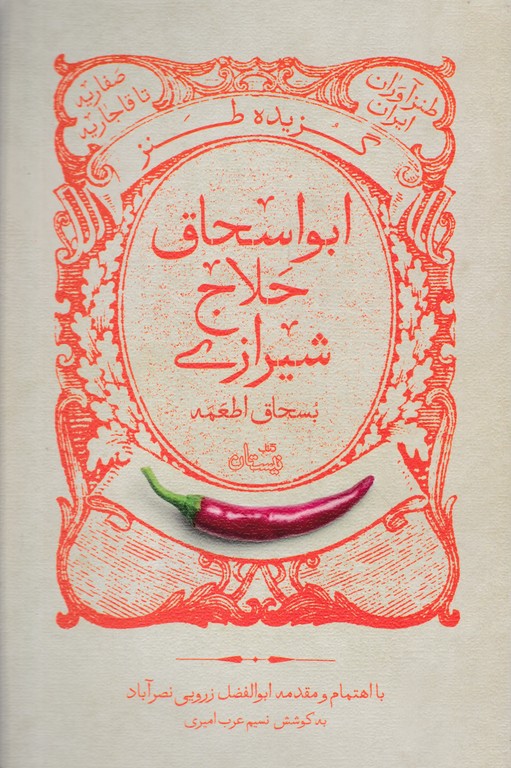 طنزآوران
ایران
صفاریه
تا قاجاریه
گزیده طنز
ابواسحاق
حلاج
شیرازی
بُسحاق اطعمه
کتاب
نیستان
با اهتمام و مقدمه ابوالفضل زرویی نصرآباد
به کوشش نسیم عرب امیری